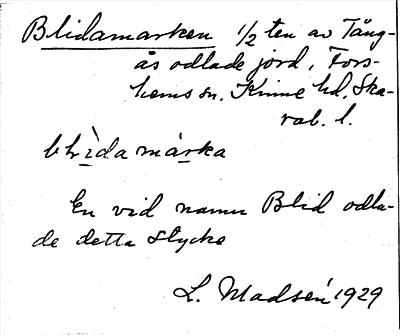 Blidamarken 1/2 ten av Tång-
ås odlade jord, Fors-
hems sn. Kinne hd. Ska-
rab. l.
blìda márka
En vid namn Blid odla-
de detta stycke
L. Madsén 1929